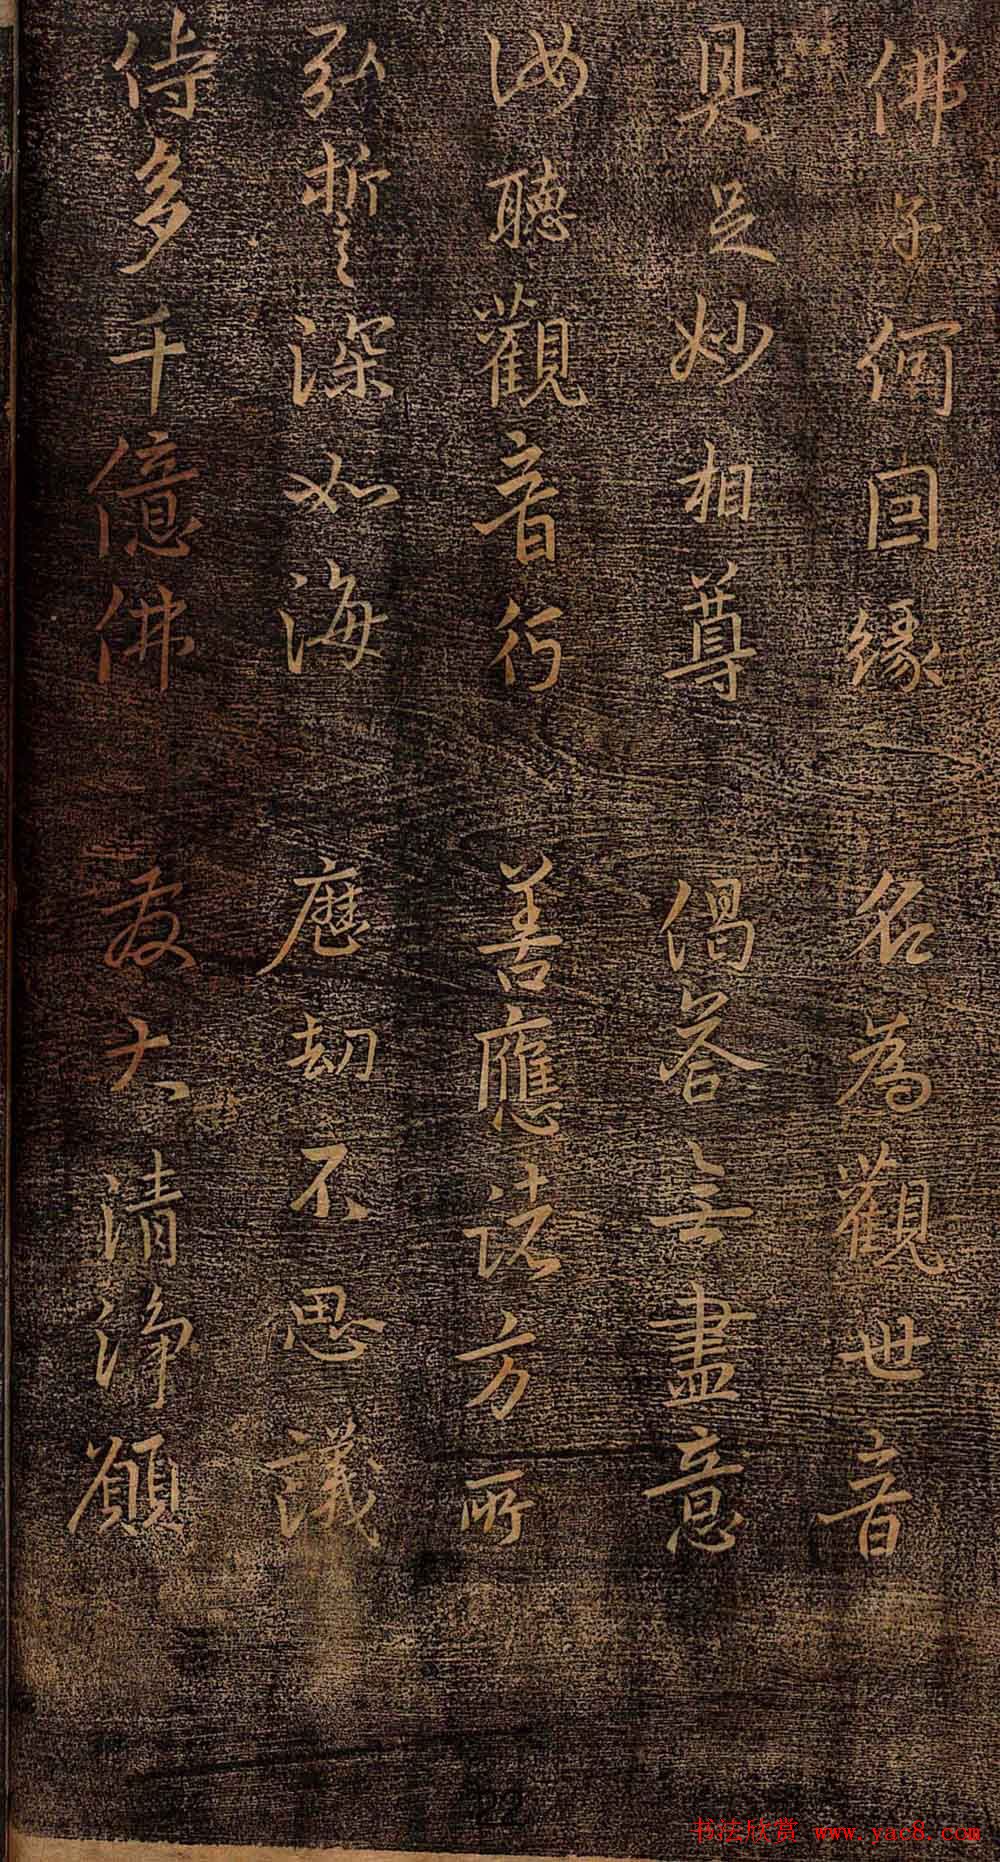 佛子何因緣 名為觀世音
具足妙相尊 偈答無盡意
汝聽觀音行 善應諸方所
弘誓深如海 歷劫不思議
侍多千億佛 發大清淨願
22
书法欣赏 www.yac8.com